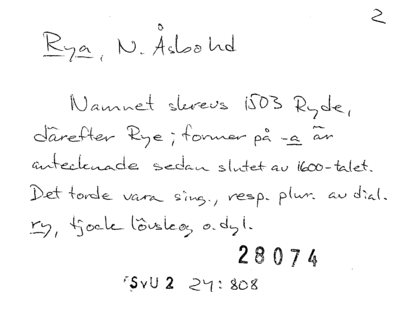 2
Rya, N. Åsbohd
Namnet skrevs 1503 Ryde,
därefter Rye; former på -a är
antecknade sedan slutet av 1600-talet.
Det torde vara sing., resp. plur. av dial.
ry, tjock lövskog o.dyl.
28074
SvU 2 24:808